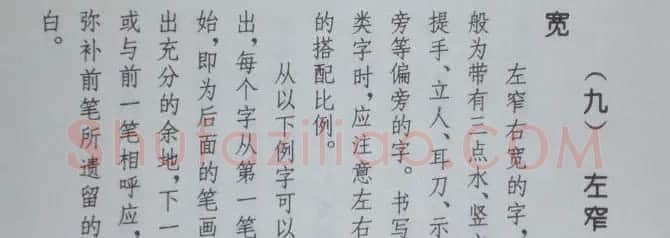 （九） 左窄
宽
左窄右宽的字，
般为带有三点水、竖
提手、立人、耳刀、示
旁等偏旁的字。书写
类字时，应注意左右
的搭配比例。
从以下例字可以
出，每个字从第一笔
始，即为后面的笔画
出充分的余地，下一
或与前一笔相呼应，
弥补前笔所遗留的
白。
Shufaziliao.COM